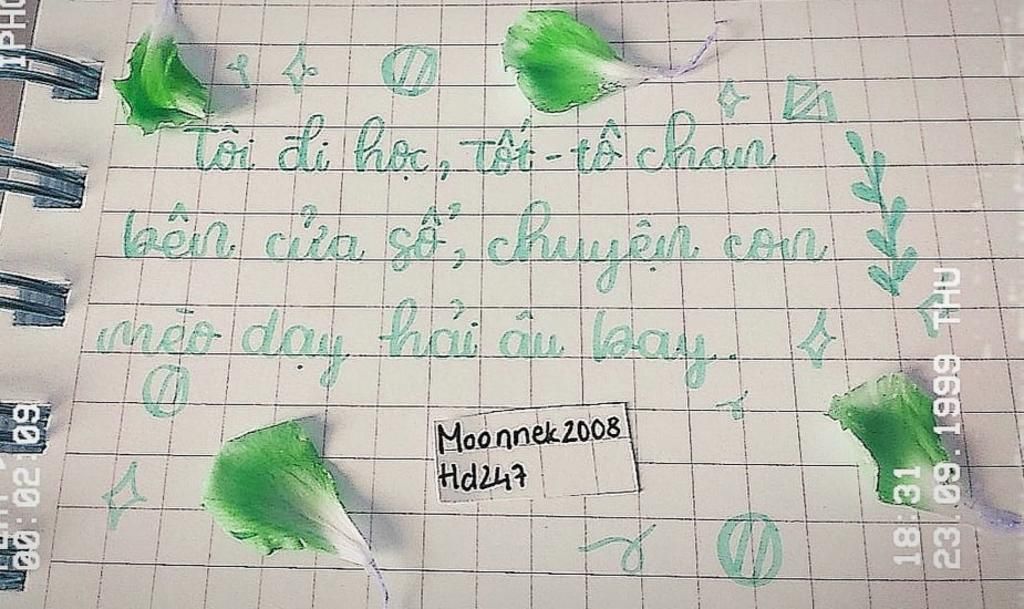 Tôi đi học, Tốt-tô chan
bên cửa sổ, chuyện con
mèo dạy hải âu bay.
Moonnek2008
Hd247
00:02:09
18:31
23.09.1999 THU